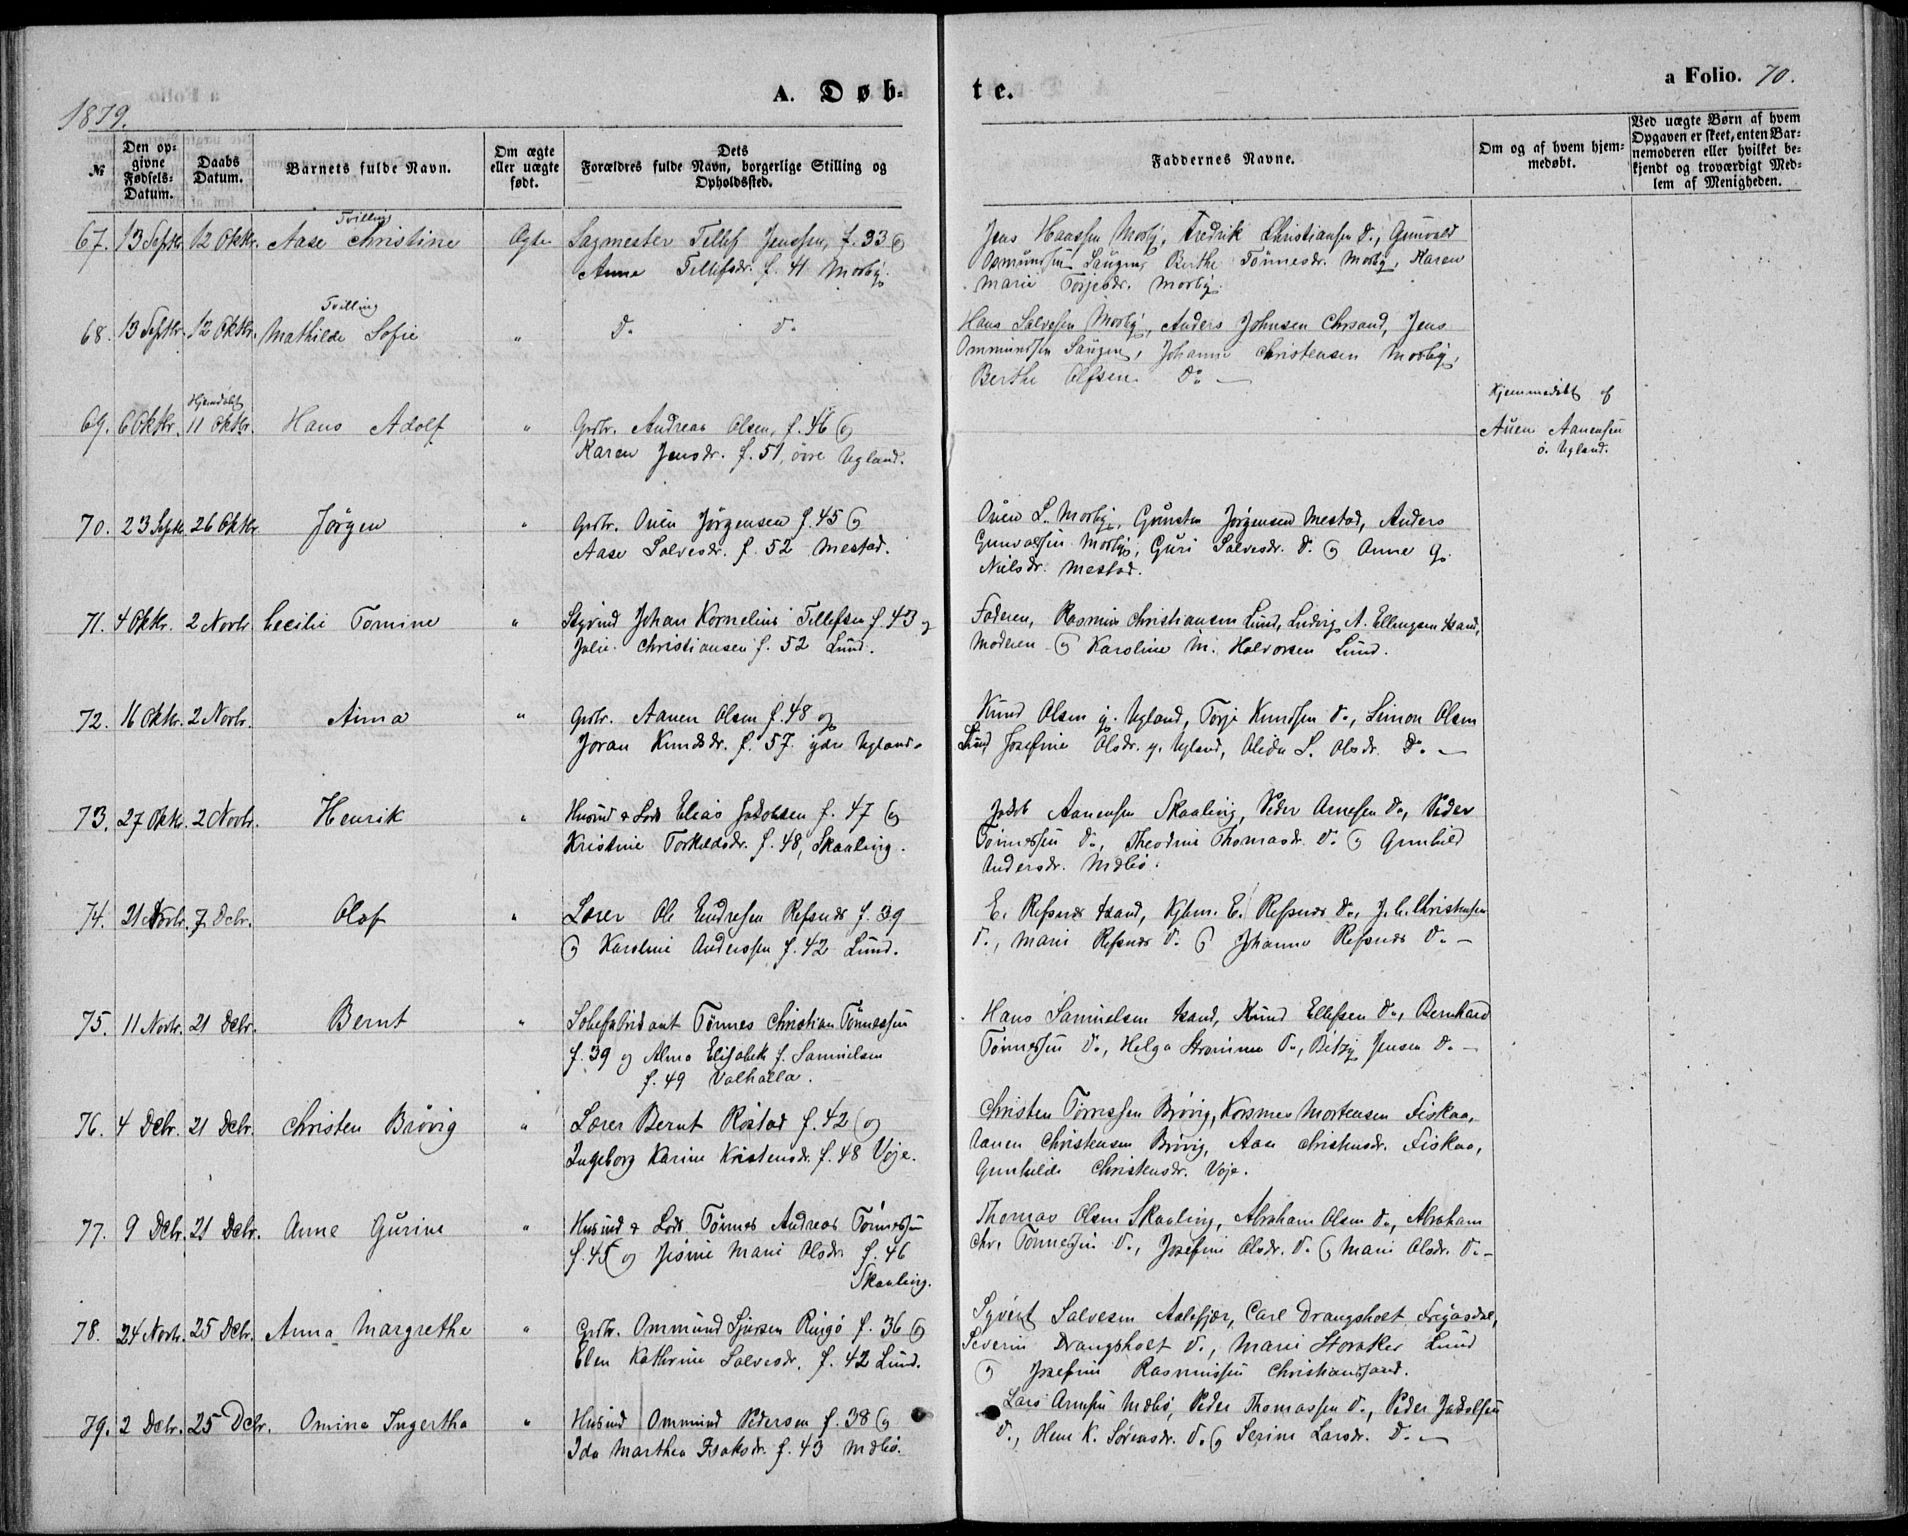 a Folio. 70.
A. Døb-
te.
1879.
№
Den op-
givne
Fødsels-
Datum.
Daabs
Datum.
Barnets fulde Navn.
Om ægte
eller uægte
født.
Dets
Forældres fulde Navn, borgerlige Stilling og
Opholdssted.
Faddernes Navne.
Om og af hvem hjem-
medøbt.
Ved uægte Børn af hvem
Opgaven er skeet, enten Bar-
nemoderen eller hvilket be-
kjendt og troværdigt Med-
lem af Menigheden.
Tvilling
67. 13 Septbr. 12 Oktbr. Aase Christine Ægte Sagmester Tellef Jenssen, f. 33 og
Anne Tellefsdr. f. 41 Mosby.
Jens Hanssen Mosby, Fredrik Christiansen do., Gunvald
Osmundsen Berthe Tønnesdr. Mosby, Karen
Marie Torjesdr. Mosby.
Tvilling
68. 13 Septbr. 12 Oktbr. Mathilde Sofie " do. do.
Hans Salvesen Mosby, Anders Johnsen Chrsand, Jens
Ommundsen Johanne Christensen Mosby,
Berthe Olfsen do. —
Hjemdøbt
69. 6 Oktbr. 11 Oktbr. Hans Adolf " Grdbr. Andreas Olsen, f. 46 og
Karen Jensdr. f. 51, øvre Ugland.
Hjemmedøbt af
Auen Aanensen
ø. Ugland.
70. 23 Septbr. 26 Oktbr. Jørgen " Grdbr. Ouen Jørgensen f. 45 og
Aase Salvesdr. f. 52 Mestad.
Ouen L. Mosby, Jørgensen Mestad, Anders
Gunvalsen Mosby, Guri Salvesdr. do. og Anne G.
Nielsdr. Mestad.
71. 4 Oktbr. 2 Novbr. Cecilie Tomine " Johan Kornelius Tellefsen f. 43 og
Julie Christiansen f. 52 Lund.
Faderen, Rasmus Christiansen Lund, Ludvig A. Ellingsen
Moderen og Karoline M. Halvorsen Lund.
72. 16 Oktbr. 2 Novbr. Anna " Grdbr. Aanen Olsen f. 48 og
Joran Knudsdr. f. 57 ydre Ugland.
Knud Olsen y. Ugland, Torje Knudsen do., Simon Olsen
Lund, Josefine Olsdr. y. Ugland, Olida S. Olsdr. do. —
73. 27 Oktbr. 2 Novbr. Henrik " Husmd & Lods Elias Jakobsen f. 47 og
Kristine Torkildsdr. f. 48, Skaaling.
Jakob Aanensen Skaaling, Peder Arnesen do., Peder
Tønnessen do., Theodine Thomasdr. do. og Gunhild
Andersdr. Mæbø.
74. 21 Novbr. 7 Decbr. Olaf " Lærer Ole Endresen Refsnes f. 39
og Karoline Anderssen f. 42 Lund.
E. Refsnes Xsand, Kjbm. E. Refsnes do., J. C. Christensen
do., Marie Refsnes do. og Johanne Refsnes do. —
75. 11 Novbr. 21 Decbr. Bernt " Sæbefabrikant Tønnes Christian Tønnessen
f. 39 og Alma Elisabeth f. Samuelsen
f. 49 Valhalla.
Hans Samuelsen Xsand, Knud Ellefsen do., Bernhard
Tønnessen do., Helga Strømme do., Betzy Jensen do. —
76. 4 Decbr. 21 Decbr. Christen Brøvig " Lærer Bernt Røstad f. 42 og
Ingeborg Karine Kristensdr. f. 48 Voje.
Christen Tørresen Brøvig, Korsmen Mortensen Fiskaa,
Aanen Christensen Brøvig, Aase Christensdr. Fiskaa,
Gunhilde Christensdr. Voje.
77. 9 Decbr. 21 Decbr. Anne Gurine " Husmd & Lods Tønnes Andreas Tønnessen
f. 45 og Marie Olsdr. f. 46
Skaaling.
Thomas Olsen Skaaling, Abraham Olsen do., Abraham
Chr. Tønnessen do., Josefine Olsdr. do. og Marie Olsdr. do. —
78. 24 Novbr. 25 Decbr. Anna Margrethe " Grdbr. Ommund Sjursen Ringø f. 36 og
Elen Kathrine Salvesdr. f. 42 Lund.
Syvert Salvesen Aalefjær, Carl Drangsholt Frigasdal,
Severin Drangsholt do., Marie Storaker Lund
og Josefine Rasmussen Christianssand.
79. 2 Decbr. 25 Decbr. Omine Ingertha " Husmd Ommund Pedersen f. 38 og
Ida Marthea Isaksdr. f. 43 Mæbø.
Lars Arnesen Mæbø, Peder Thomassen do., Peder Jakobsen
do., K. Sørensdr. do. og Serine Larsdr. do. —